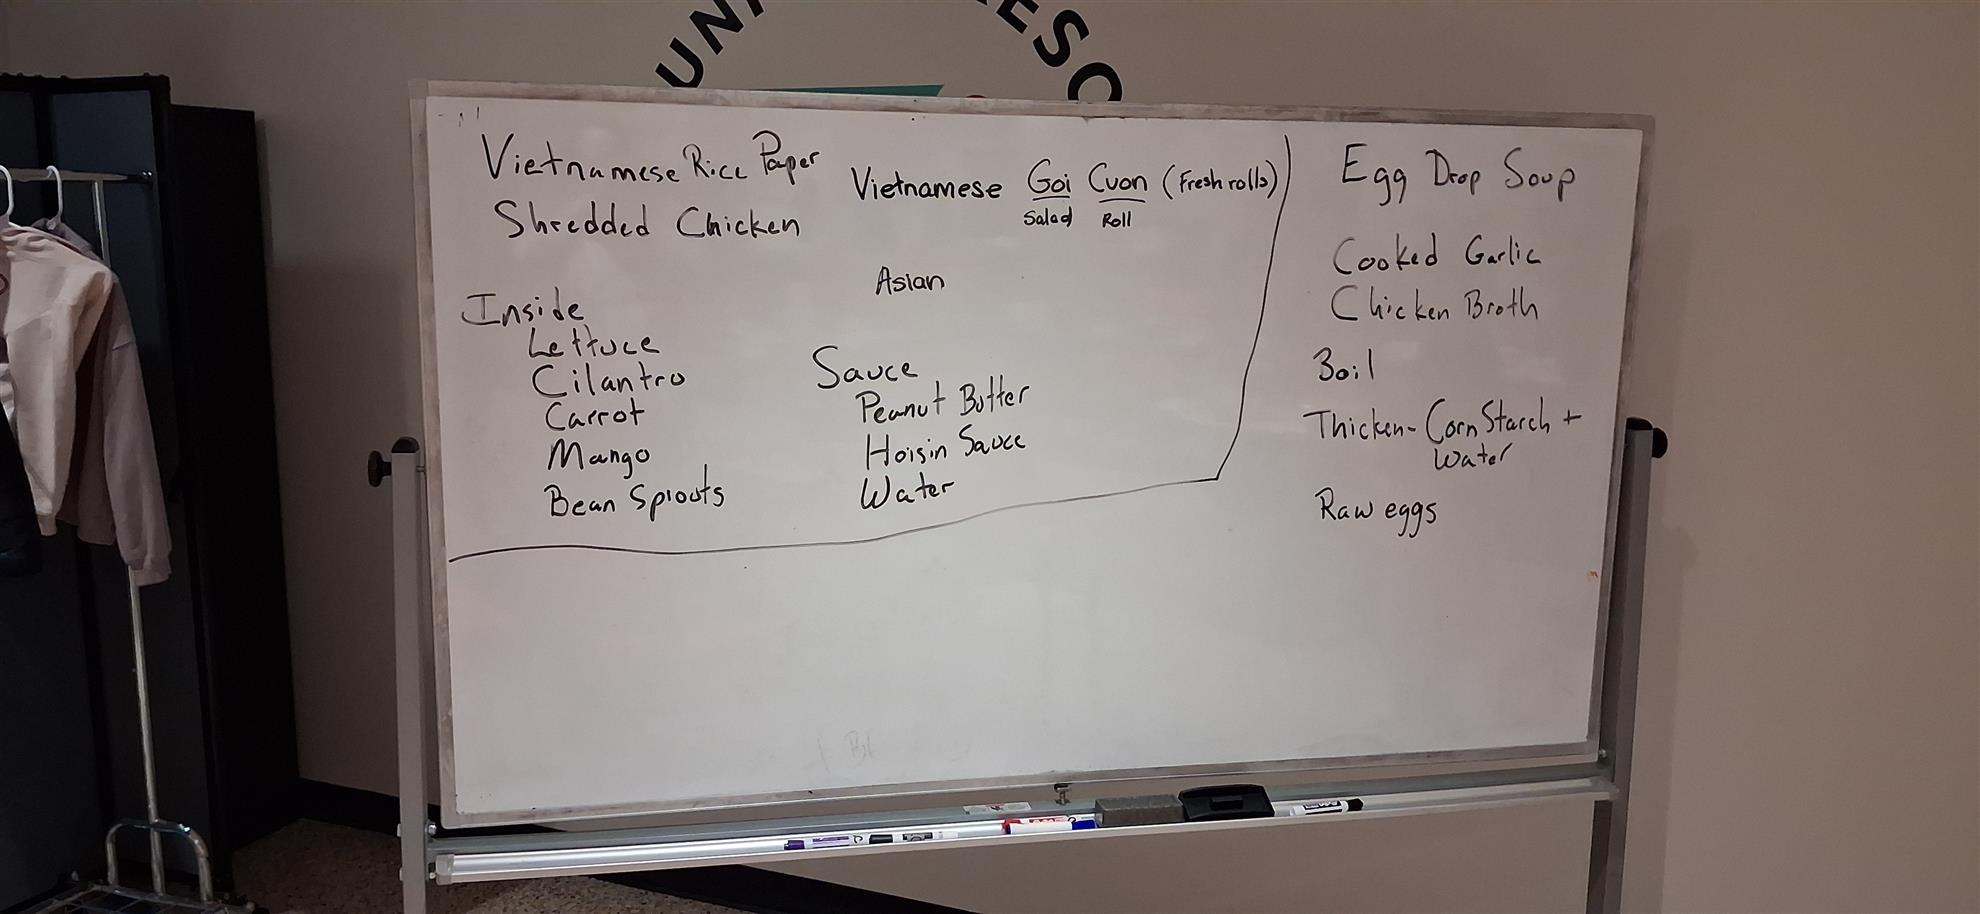 Vietnamese Rice Paper
Shredded Chicken
Vietnamese Goi Cuon (Fresh rolls)
Salad Roll
Asian
Inside
Lettuce
Cilantro
Carrot
Mango
Bean Sprouts
Sauce
Peanut Butter
Hoisin Sauce
Water
Egg Drop Soup
Cooked Garlic
Chicken Broth
Boil
Thicken- Corn Starch +
Water
Raw eggs